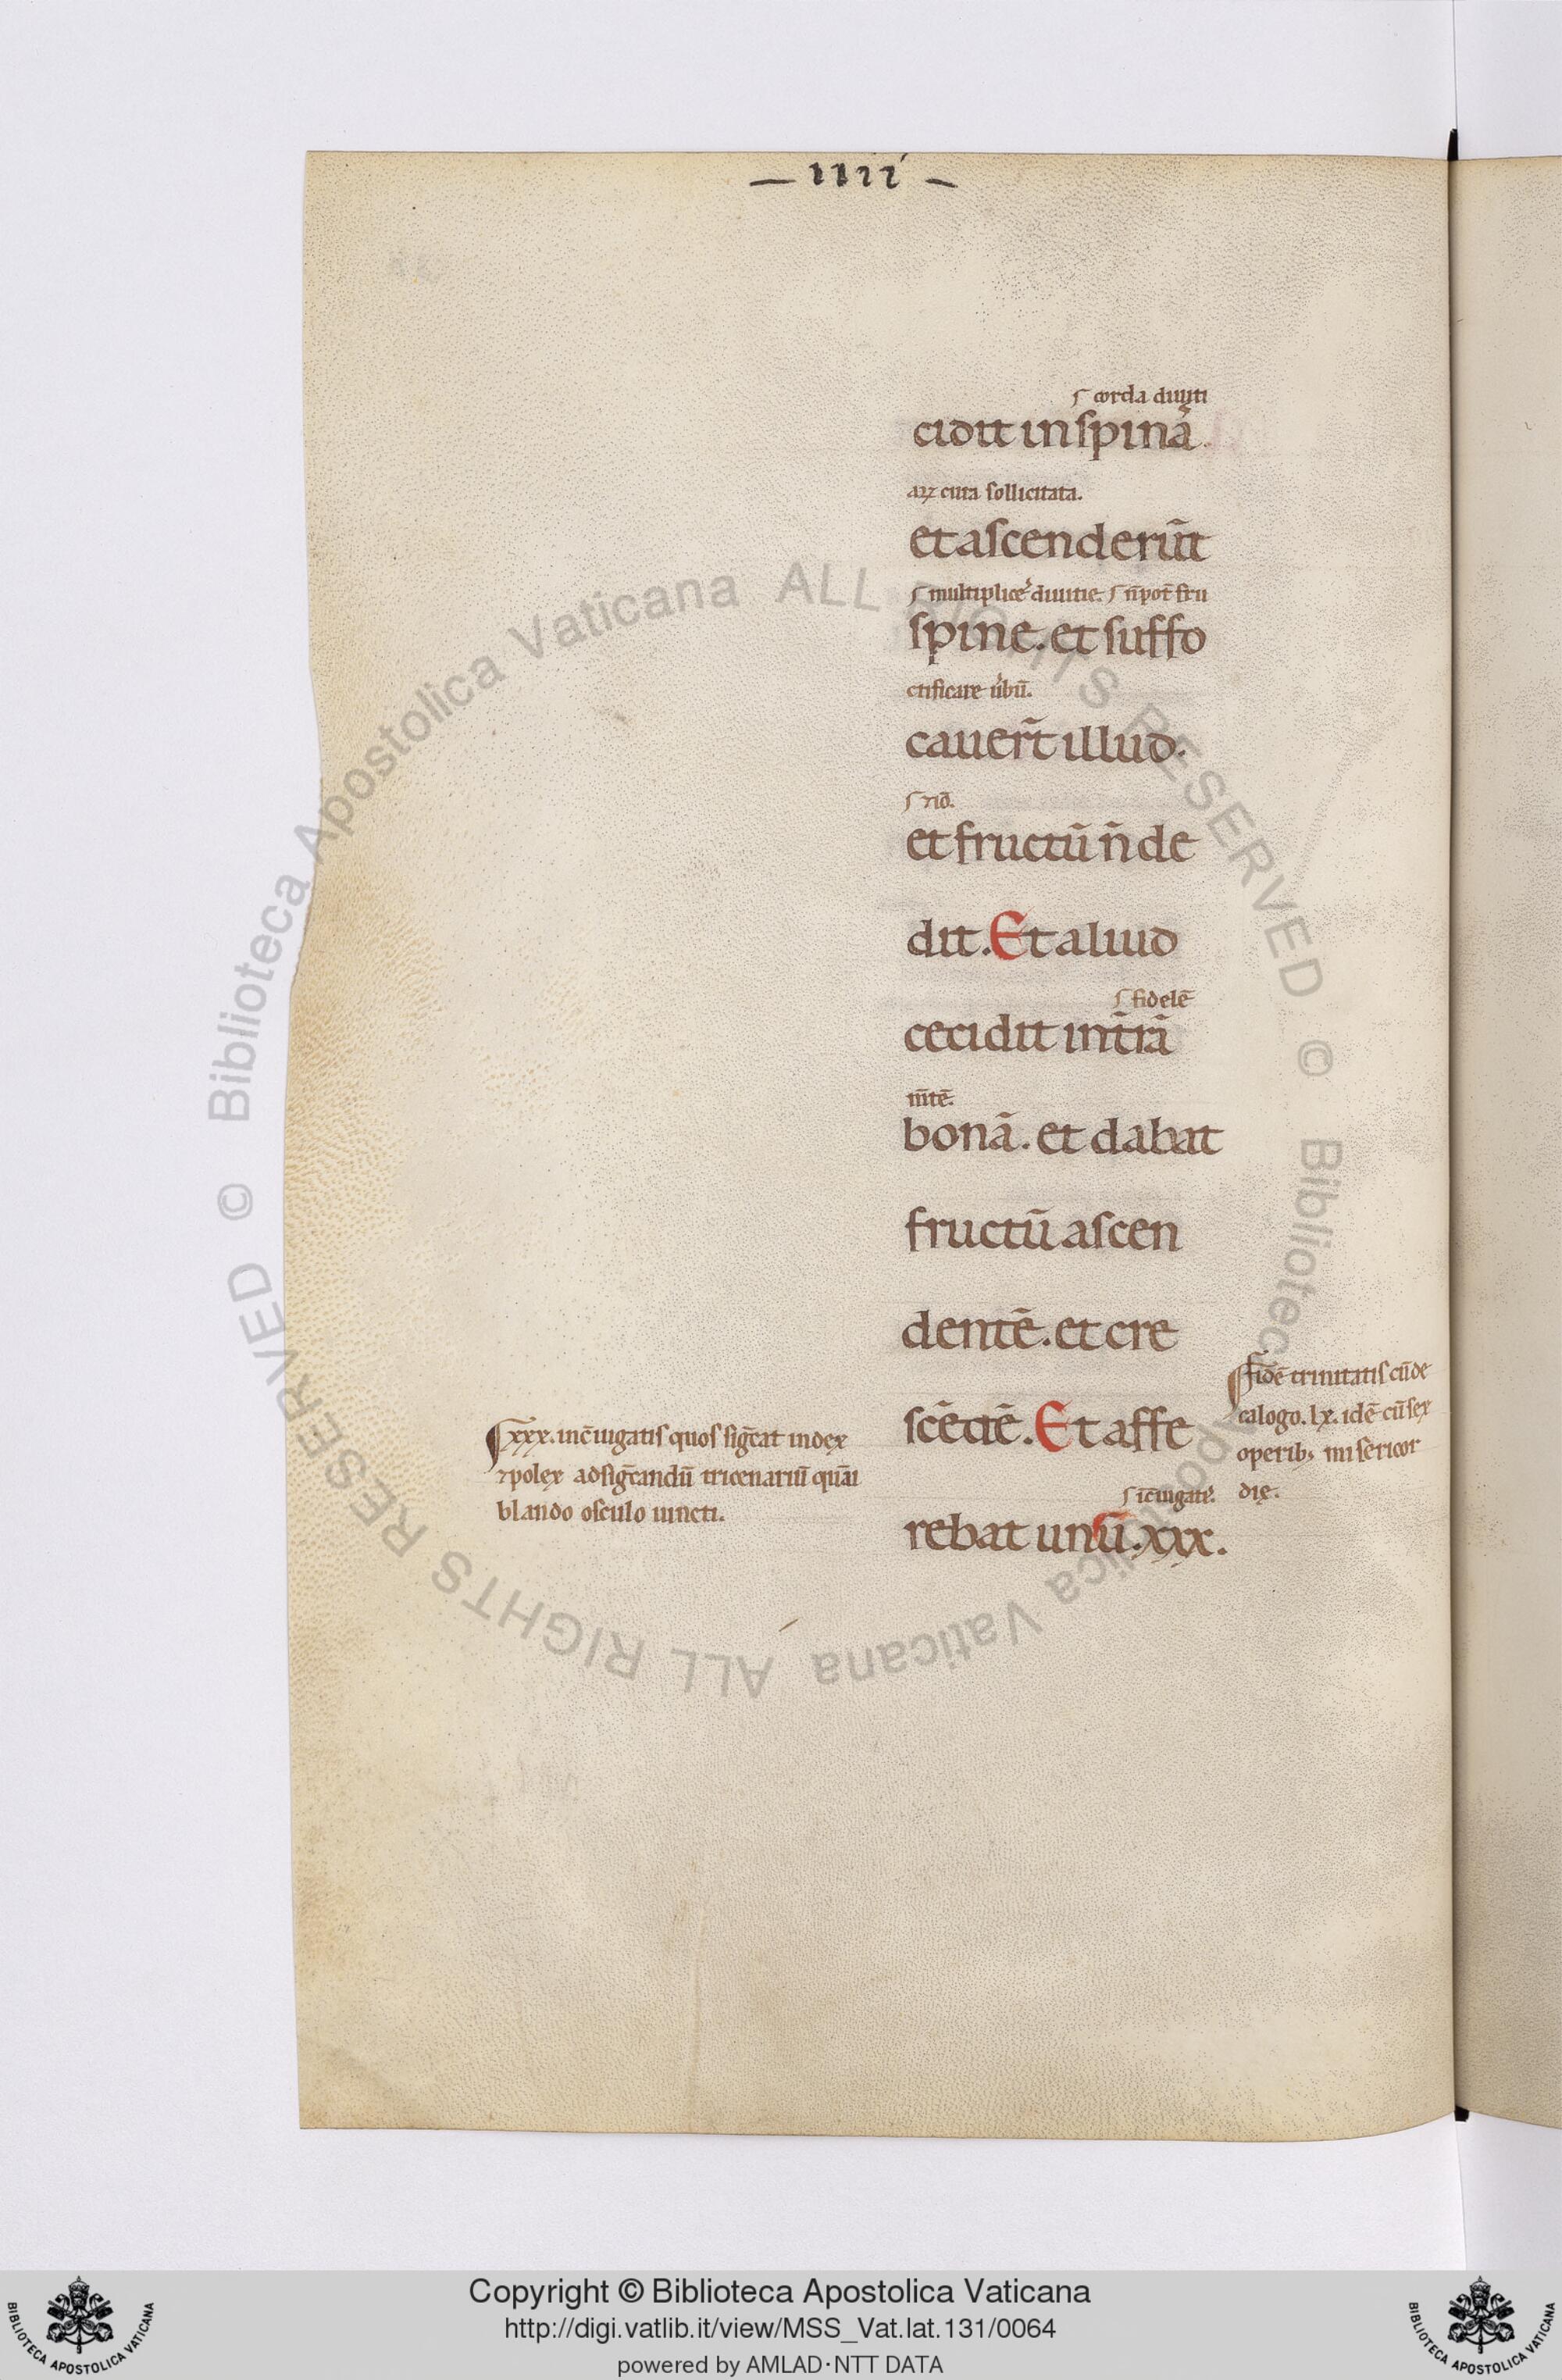 — iiii —
⌈ corda diuiti
cidit in spinā.
aꝝ cura sollicitata.
et ascenderūt
⌈ multiplicēʼ diuitie. ⌈ n̄ pot̄ fru
spine. et suffo
ctificare ub̄ū.
cauer̄t illud.
⌈ ⁊iđ.
et fructū n̄ de
dit. Et aliud
⌈ fidelē
cecidit in t̄rā
m̄tē.
bonā. et dabat
fructū ascen
dentē. et cre
scētē. Et affe
⌈ ic̄iugateʼ.
rebat unū. xxx.
xxx. in c̄iugatis quos sig̅cat index
⁊ polex ad sig̅candū tricenariū quāi
blando osculo uincti.
fidē trinitatis cū de
calogo. lx. idē cū sex
operibꝫ misericor
dię.
© Biblioteca Apostolica Vaticana ALL RIGHTS RESERVED © Biblioteca Apostolica Vaticana ALL RIGHTS RESERVED
Copyright © Biblioteca Apostolica Vaticana
http://digi.vatlib.it/view/MSS_Vat.lat.131/0064
powered by AMLAD·NTT DATA
BIBLIOTECA APOSTOLICA VATICANA
BIBLIOTECA APOSTOLICA VATICANA